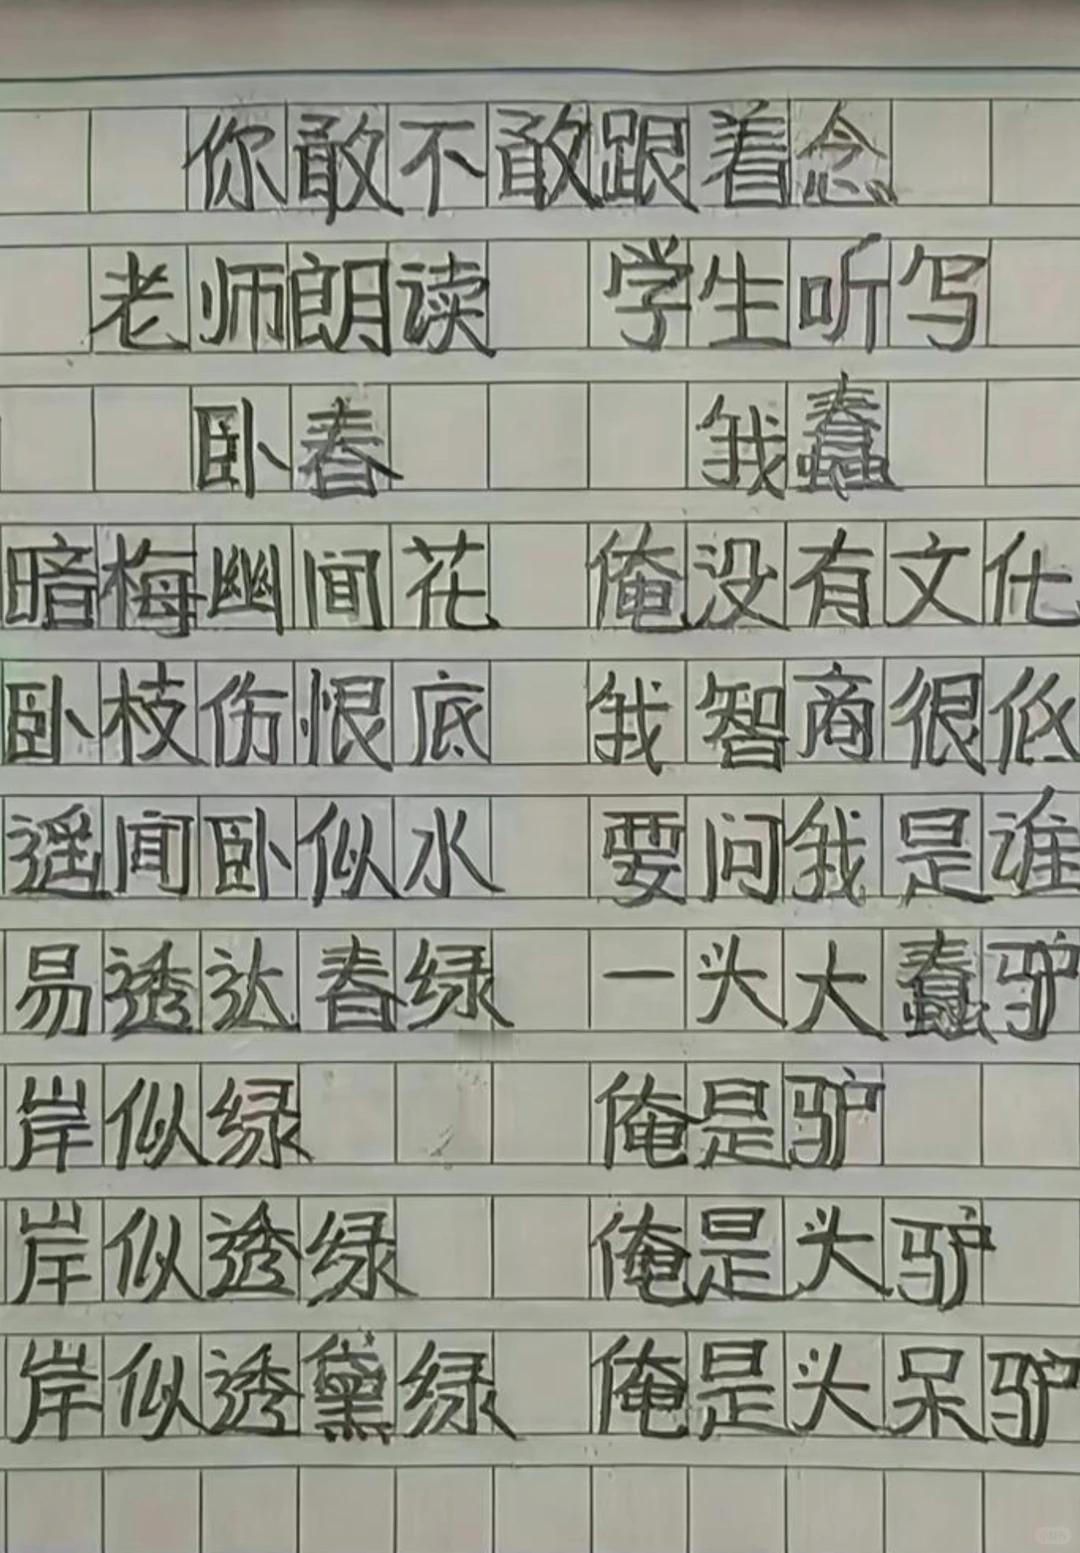 你敢不敢跟着念
老师朗读 学生听写
卧春 我蠢
暗梅幽间花 俺没有文化
卧枝伤恨底 我智商很低
遥闻卧似水 要问我是谁
易透达春绿 一头大蠢驴
岸似绿 俺是驴
岸似透绿 俺是头驴
岸似透黛绿 俺是头呆驴